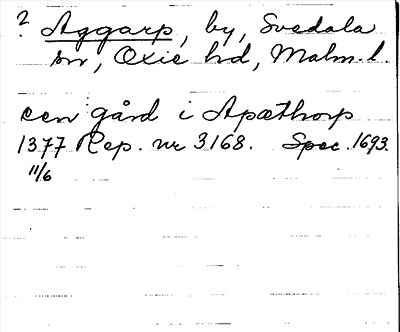 ? Aggarp, by, Svedala
sn, Oxie hd, Malm. l.
een gård i Apæthorp
1377 Rep. nr 3168. Spec. 1693.
11/6